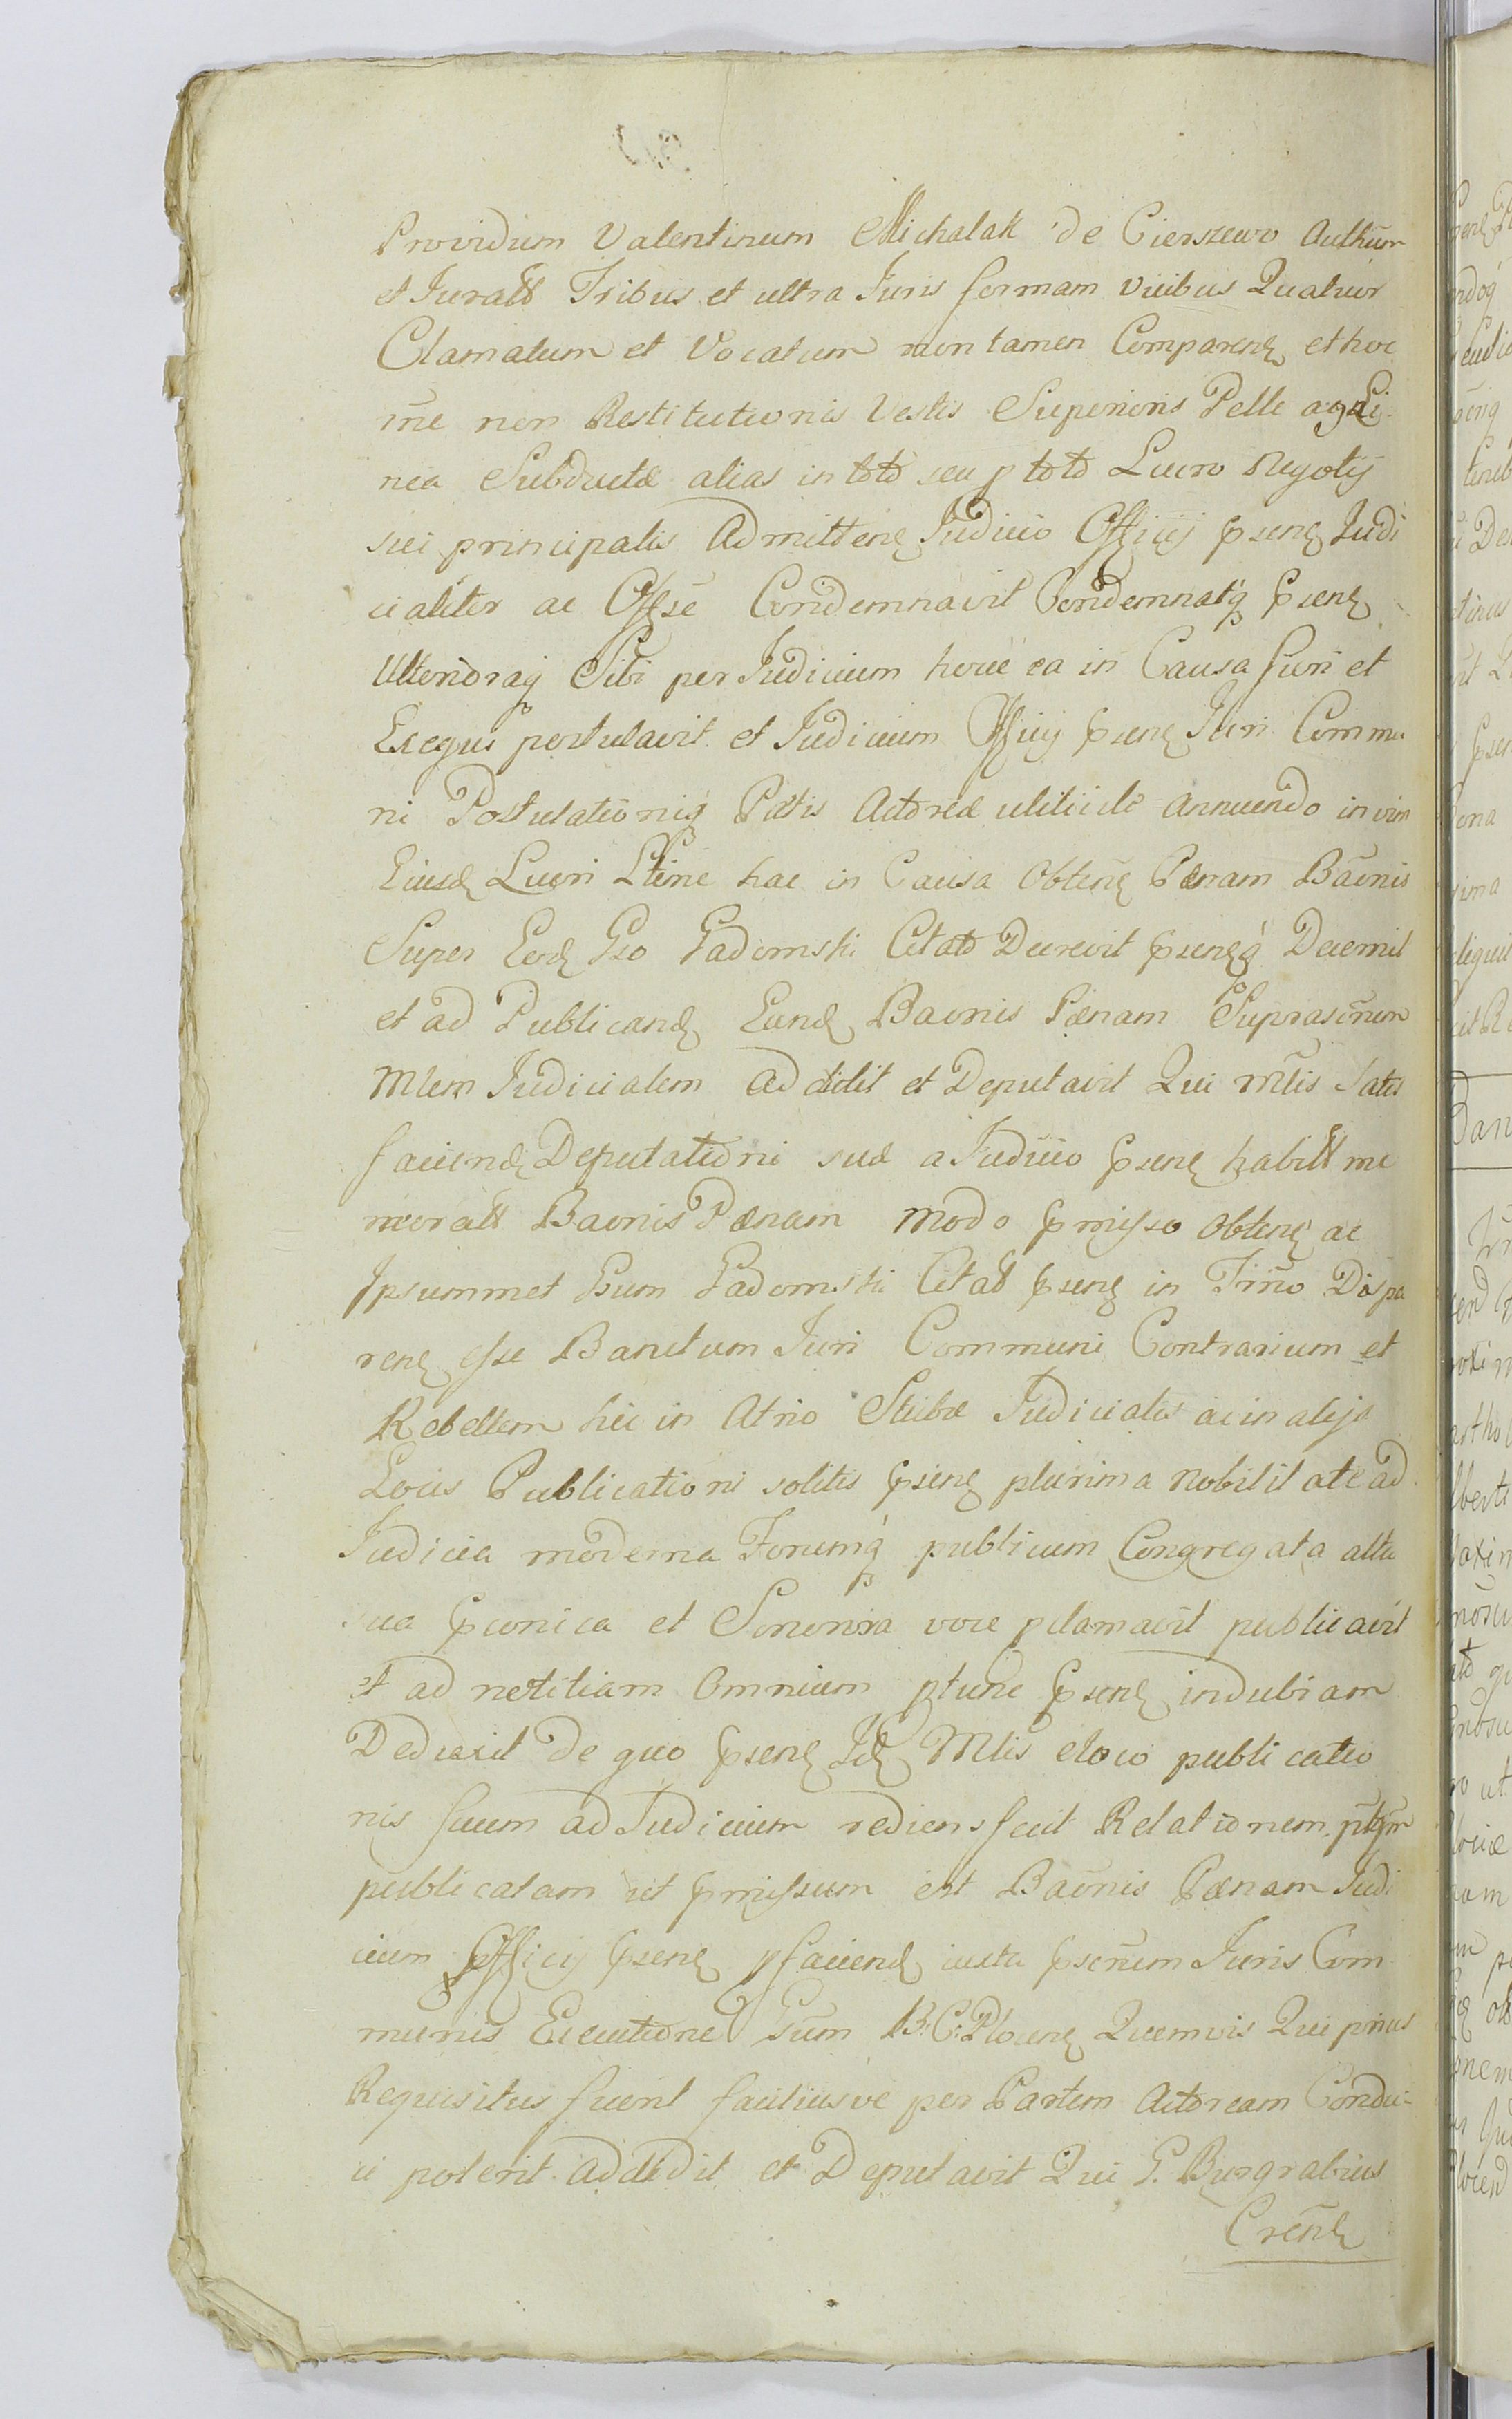 Providum Valentinum Michalak de Cierszewo Authum
et Juratt Tribus et ultra Juris formam vicibus Quatuor
Clamatum et Vocatum non tamen Comparenę et hoc
rñe non Restitutionis Vestis Superioris Pelle agni
nea Subductæ alias in toto seu p toto Lucro Negotij
sui principalis Admittenę Judicio Officij psenę Judi
cialiter ac Offse Condemnavit Condemnatq psenę
Ulterioraq Sibi per Judicium hocce ea in Causa fieri et
Exequi postulavit et Judicium Officij psenę Juri Commu
ni Postulationiq Ptis Actoreæ annuendo in vim
Eiusd Lucri hac in Causa Obtenę Pænam Baõnis
Super Eod Gso Gadomski Citato Decrevit psenęq Decernit
et ad Publicand Eand Baonis Pænam Suprascr̃um
Mlem Judicialem addidit et Deputavit Qui Mlis Satis
faciend Deputationi suæ a Judicio psenę habitt me
moratt Baonis Pænam modo pmisso obtenę ac
Ipsummet Gsum Gadomski Citatt psenę in Trño Dispa
renę esse Banitum Juri Communi Contrarium et
Rebellem hic in Atrio Stubæ Judicialis ac in alijs
Locis Publicationi solitis psenę plurima Nobilitate ad
Judicia moderna Forumq publicum Congregata alta
sua pconica et Sonora voce pclamavit publicavit
et ad notitiam Omnium ptunc psenę indubiam
Deduxit De quo psenę Id Mlis e loco publicatio
nis suum ad Judicium rediens fecit Relationem
publicatam ut pmissum est Baõnis Pænam Judi
cium Officij psenę p faciend iuxta pscr̃um Juris Com
munis Executione Gsum B: C: Plocenę Quemvis Qui prius
Requisitus fuerit faciliusve per Partem Actoream Condu-
ci poterit addidit et Deputavit Qui G. Burgrabius
Crẽnd